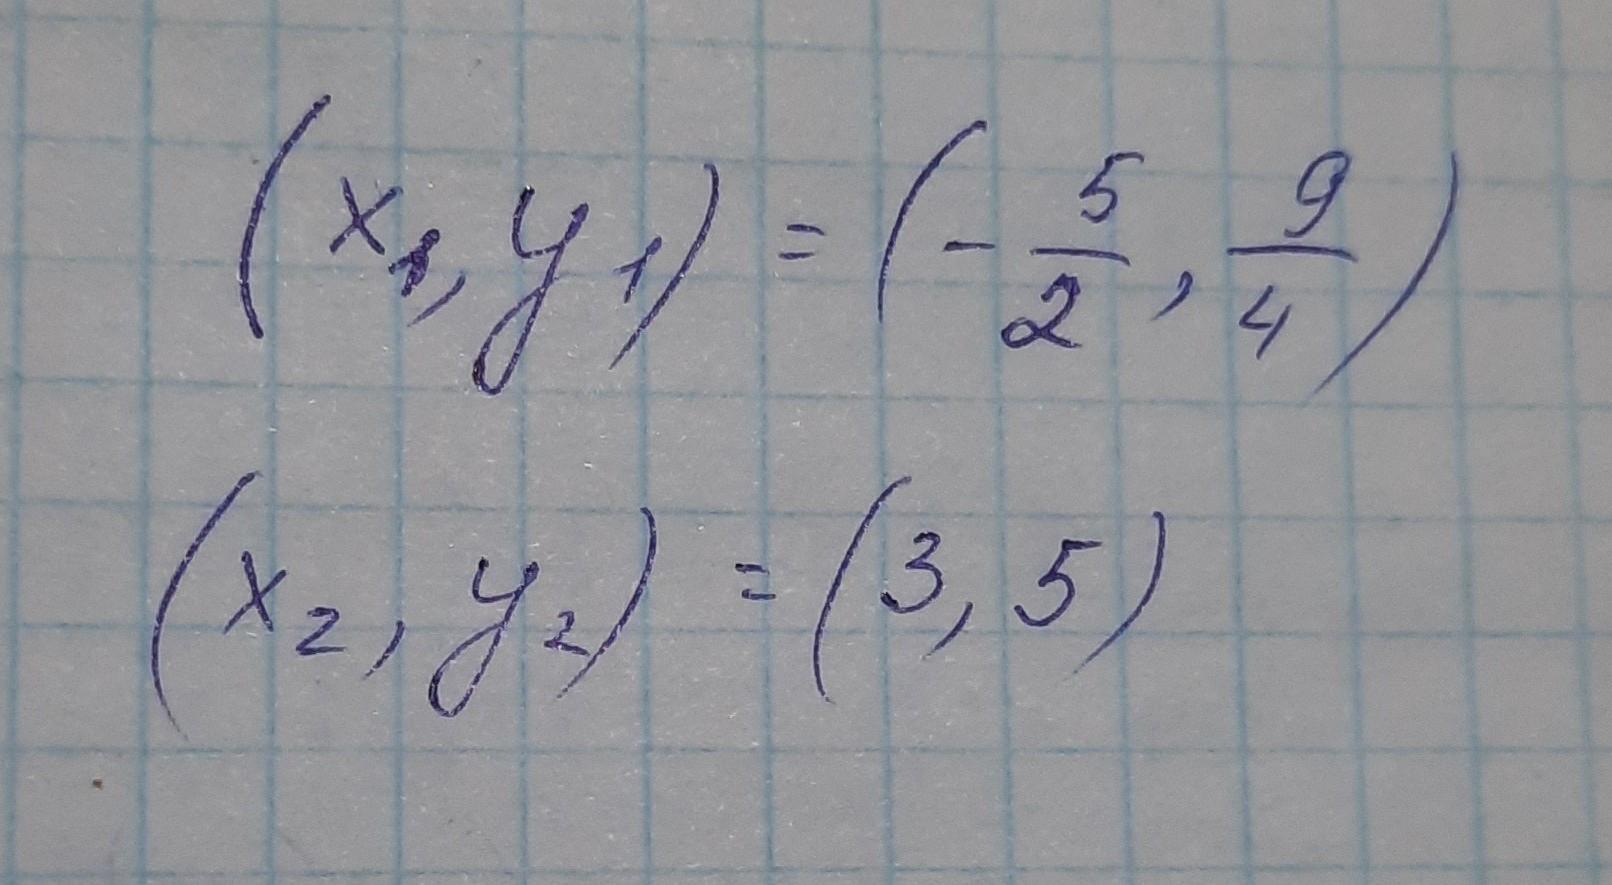 (x₁, y₁) = (-5/2, 9/4)
(x₂, y₂) = (3, 5)